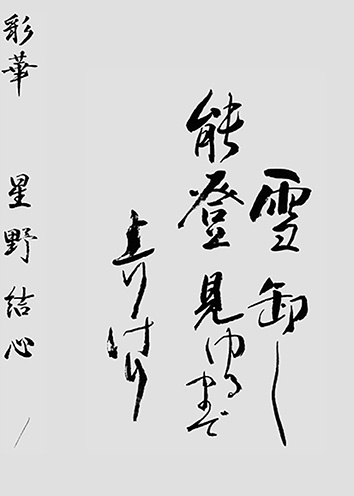 雪卸し
能登見ゆるまで
上りけり
彩華　星野結心